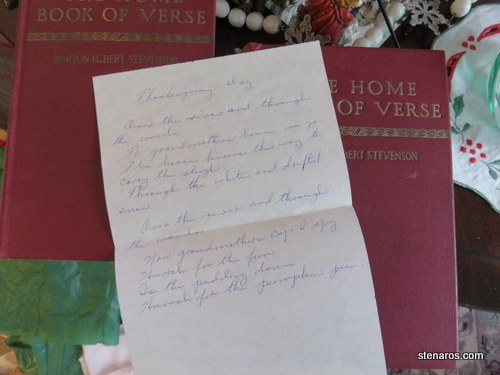 THE HOME
BOOK OF VERSE
BURTON EGBERT STEVENSON
THE HOME
OF VERSE
EGBERT STEVENSON
Thanksgiving Day
Over the river and through
the woods
To grandmothers house we go
The horse knows the way to
carry the sleigh
Through the white and drifted
snow
Over the river and through
the woods
Now grandmothers cap I spy
Hurrah for the fun
Is the pudding done
Hurrah for the pumpkin pie
stenaros.com